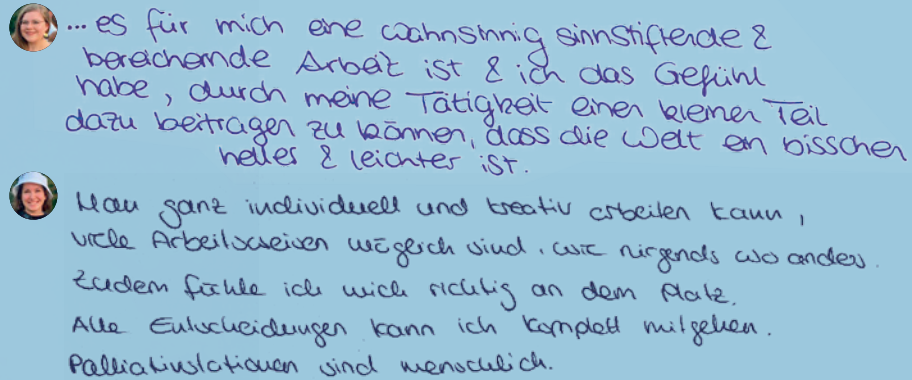 ... es für mich eine wahnsinnig sinnstiftende &
bereichernde Arbeit ist & ich das Gefühl
habe, durch meine Tätigkeit einen kleinen Teil
dazu beitragen zu können, dass die Welt ein bisschen
helles & leichter ist.
Man ganz individuell und kreativ arbeiten kann,
viele Arbeitsweisen möglich sind, wie nirgends wo anders.
Zudem fühle ich mich richtig an dem Platz.
Alle Entscheidungen kann ich komplett mitgehen.
Palliativstationen sind menschlich.